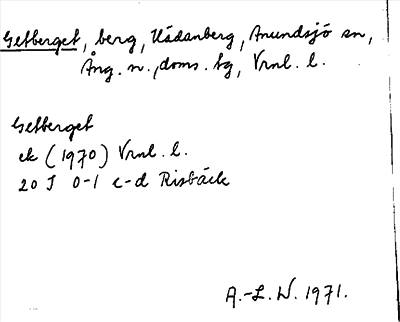 Getberget, berg, Kådanberg, Anundsjö sn,
Ång. n., doms. tg, Vrnl. l.
Getberget
ek (1970) Vrnl. l.
20 I 0-1 c-d Risbäck
A.-L. W. 1971.